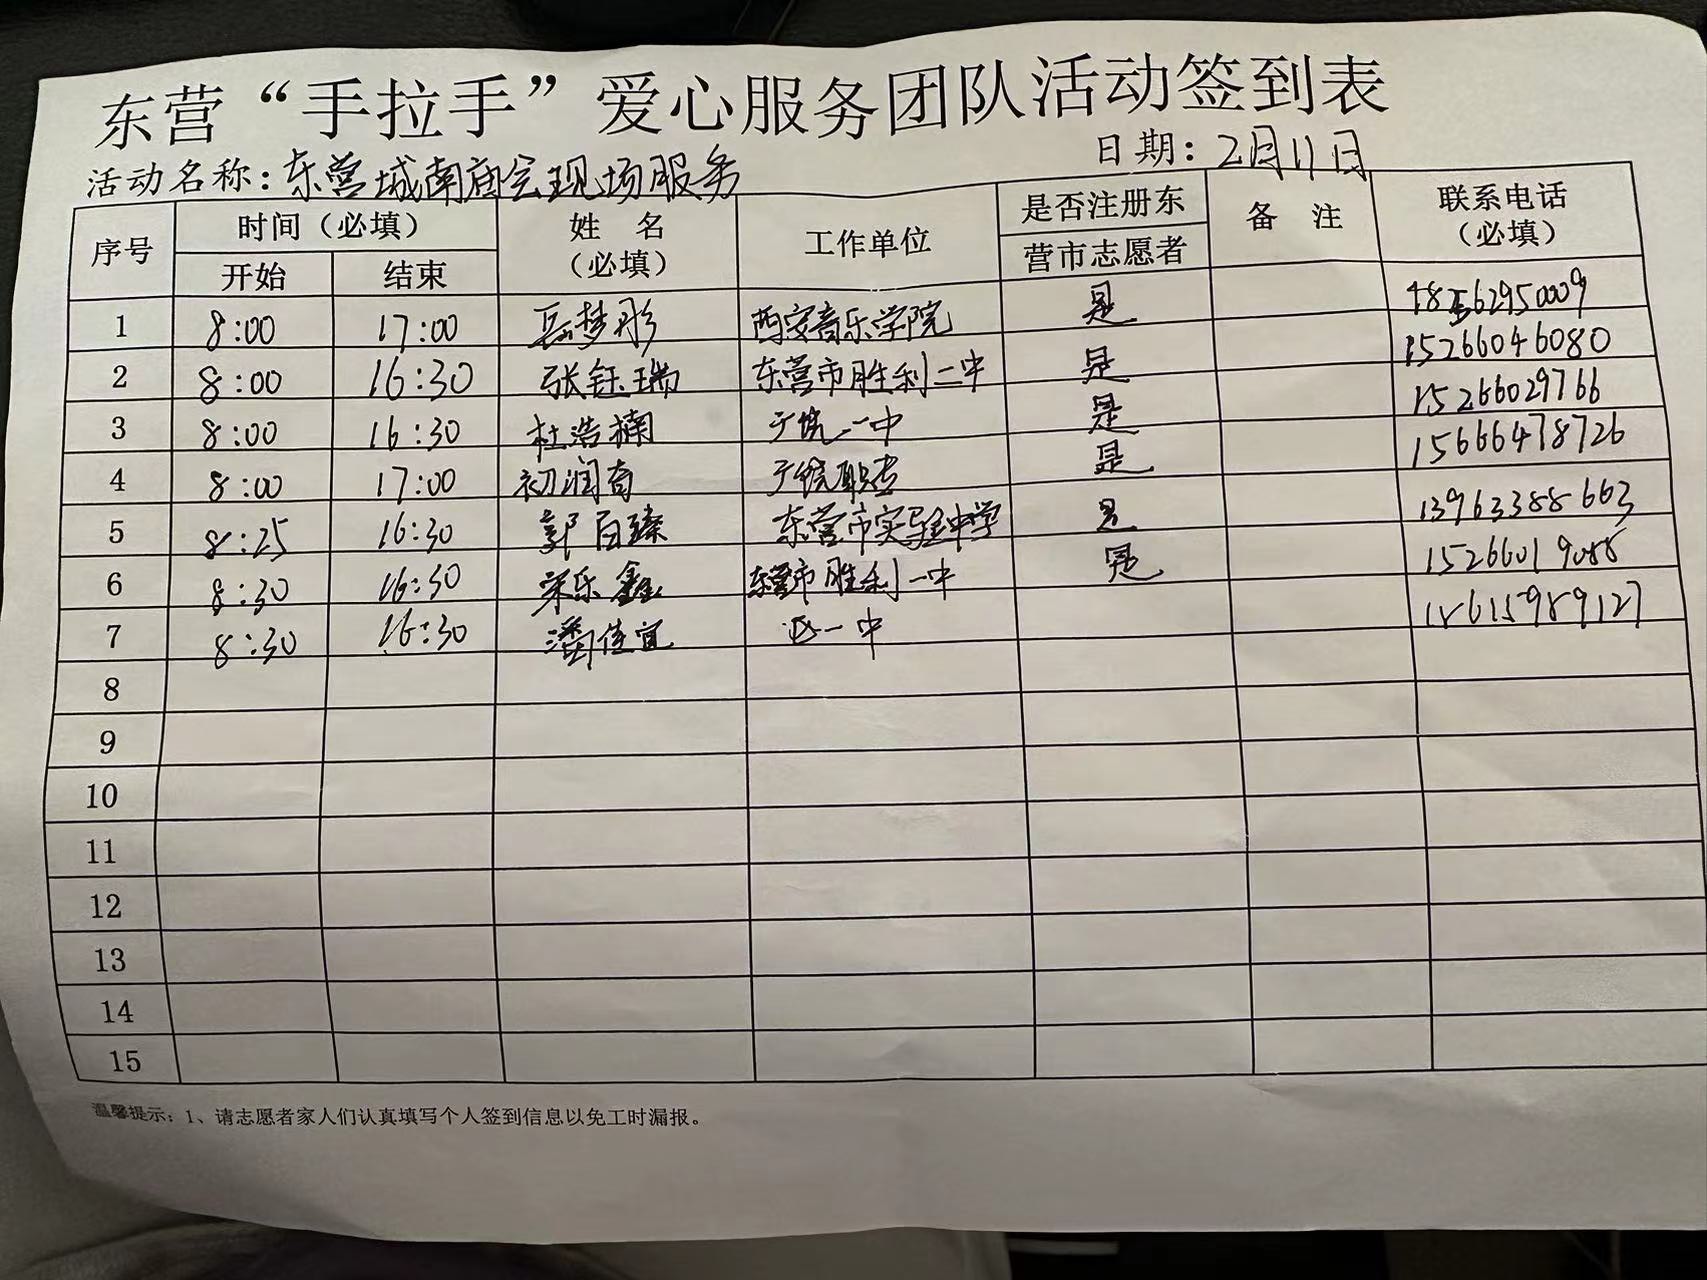 东营“手拉手”爱心服务团队活动签到表
活动名称：东营城南庙会现场服务 日期：2月11日
序号 时间（必填） 开始 结束 姓 名（必填） 工作单位 是否注册东营市志愿者 备 注 联系电话（必填）
1 8:00 17:00 岳梦彤 西安音乐学院 是 18562950009
2 8:00 16:30 张钰瑞 东营市胜利二中 是 15266046080
3 8:00 16:30 杜浩楠 一中 是 15266029766
4 8:00 17:00 初润奇 职专 是 15666478726
5 8:25 16:30 郭百臻 东营市实验中学 是 13963388663
6 8:30 16:30 宋乐鑫 东营市胜利一中 是 15266019088
7 8:30 16:30 潘佳宜 一中 18615989127
8
9
10
11
12
13
14
15
温馨提示：1、请志愿者家人们认真填写个人签到信息以免工时漏报。